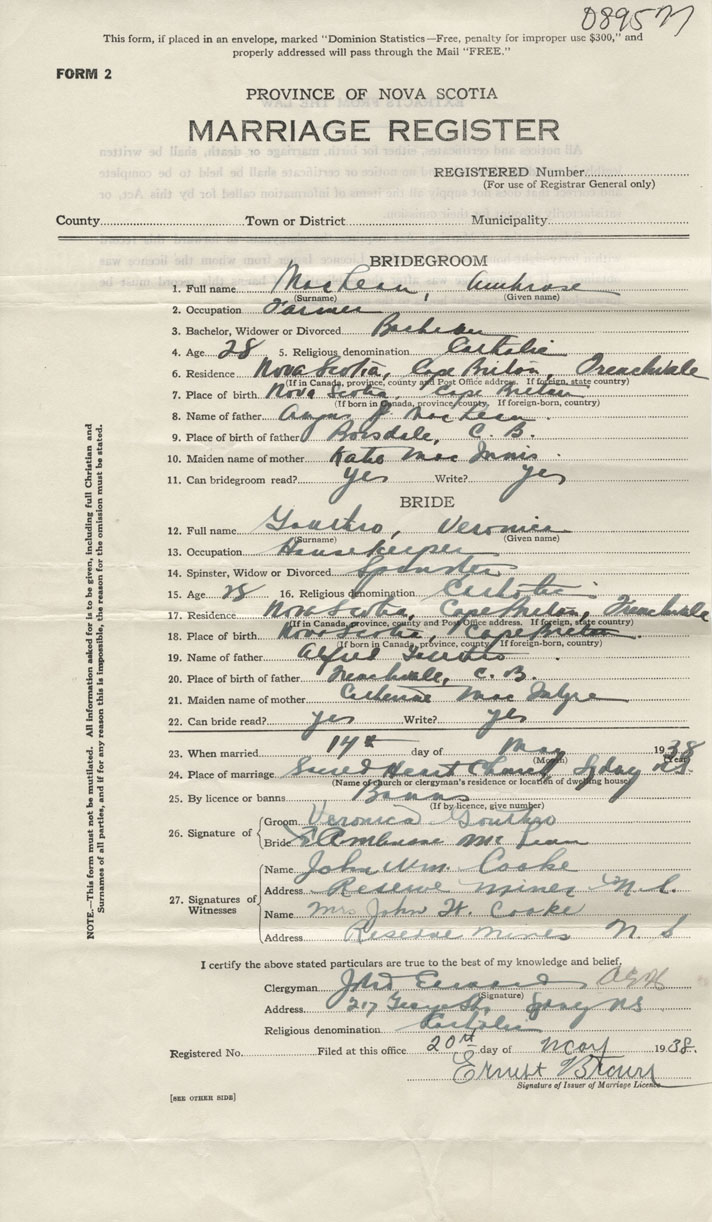 089577
This form, if placed in an envelope, marked "Dominion Statistics—Free, penalty for improper use $300," and
properly addressed will pass through the Mail "FREE."
FORM 2
PROVINCE OF NOVA SCOTIA
MARRIAGE REGISTER
REGISTERED Number
(For use of Registrar General only)
County Town or District Municipality
BRIDEGROOM
1. Full name MacLean, Ambrose
(Surname) (Given name)
2. Occupation Farmer
3. Bachelor, Widower or Divorced Bachelor
4. Age 28 5. Religious denomination Catholic
6. Residence Nova Scotia, Cape Breton, Frenchvale
(If in Canada, province, county and Post Office address. If foreign, state country)
7. Place of birth Nova Scotia, Cape Breton
(If born in Canada, province, county. If foreign-born, country)
8. Name of father Angus J. MacLean
9. Place of birth of father Boisdale, C. B.
10. Maiden name of mother Katie Mac Innis
11. Can bridegroom read? yes Write? yes
BRIDE
12. Full name Gouthro, Veronica
(Surname) (Given name)
13. Occupation Housekeeper
14. Spinster, Widow or Divorced Spinster
15. Age 16. Religious denomination Catholic
17. Residence Nova Scotia, Cape Breton, Frenchvale
(If in Canada, province, county and Post Office address. If foreign, state country)
18. Place of birth Nova Scotia, Cape Breton
(If born in Canada, province, county. If foreign-born, country)
19. Name of father Alfred Gouthro
20. Place of birth of father Frenchvale, C. B.
21. Maiden name of mother Catherine Mac Intyre
22. Can bride read? yes Write? yes
23. When married 14th day of May 1938
(Month) (Year)
24. Place of marriage Sacred Heart Church Sydney N.S.
(Name of church or clergyman's residence or location of dwelling house)
25. By licence or banns Banns
(If by licence, give number)
26. Signature of
Groom Veronica Gouthro
Bride Ambrose Mc Lean
27. Signatures of Witnesses
Name John Wm. Cooke
Address Reserve Mines N.S.
Name Mrs John W. Cooke
Address Reserve Mines N S
I certify the above stated particulars are true to the best of my knowledge and belief.
Clergyman
(Signature)
Address 217 George St., Sydney NS
Religious denomination Catholic
Registered No. Filed at this office 20th day of May 1938.
Ernest
Signature of Issuer of Marriage Licence
[SEE OTHER SIDE]
NOTE.—This form must not be mutilated. All information asked for is to be given, including full Christian and
Surnames of all parties, and if for any reason this is impossible, the reason for the omission must be stated.